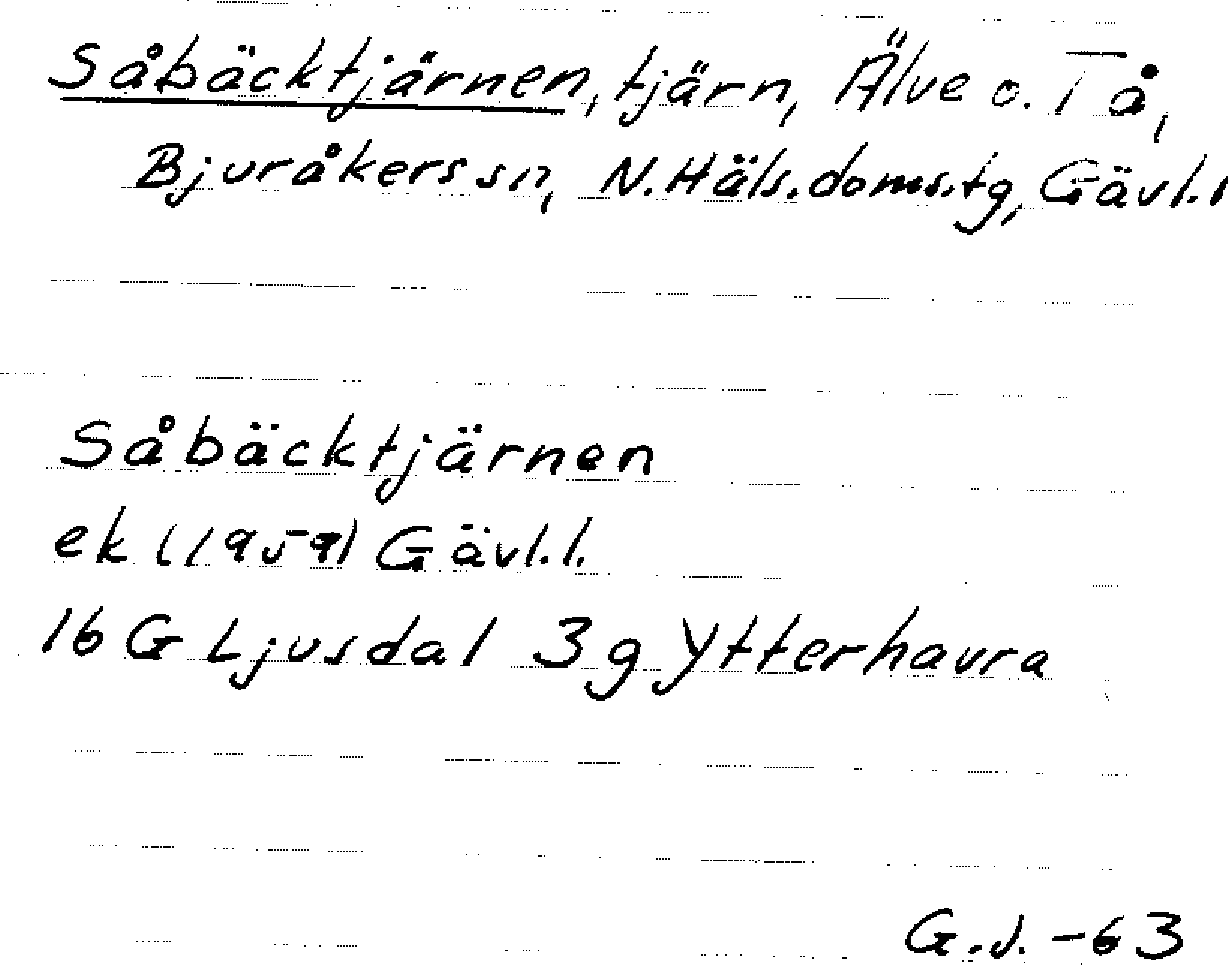 Såbäcktjärnen, tjärn, Älve o. Tå,
Bjuråkers sn, N. Häls. doms.tg, Gävl.l
Såbäcktjärnen
ek (1959) Gävl.l.
16 G Ljusdal 3g Ytterhavra
G.J. -63